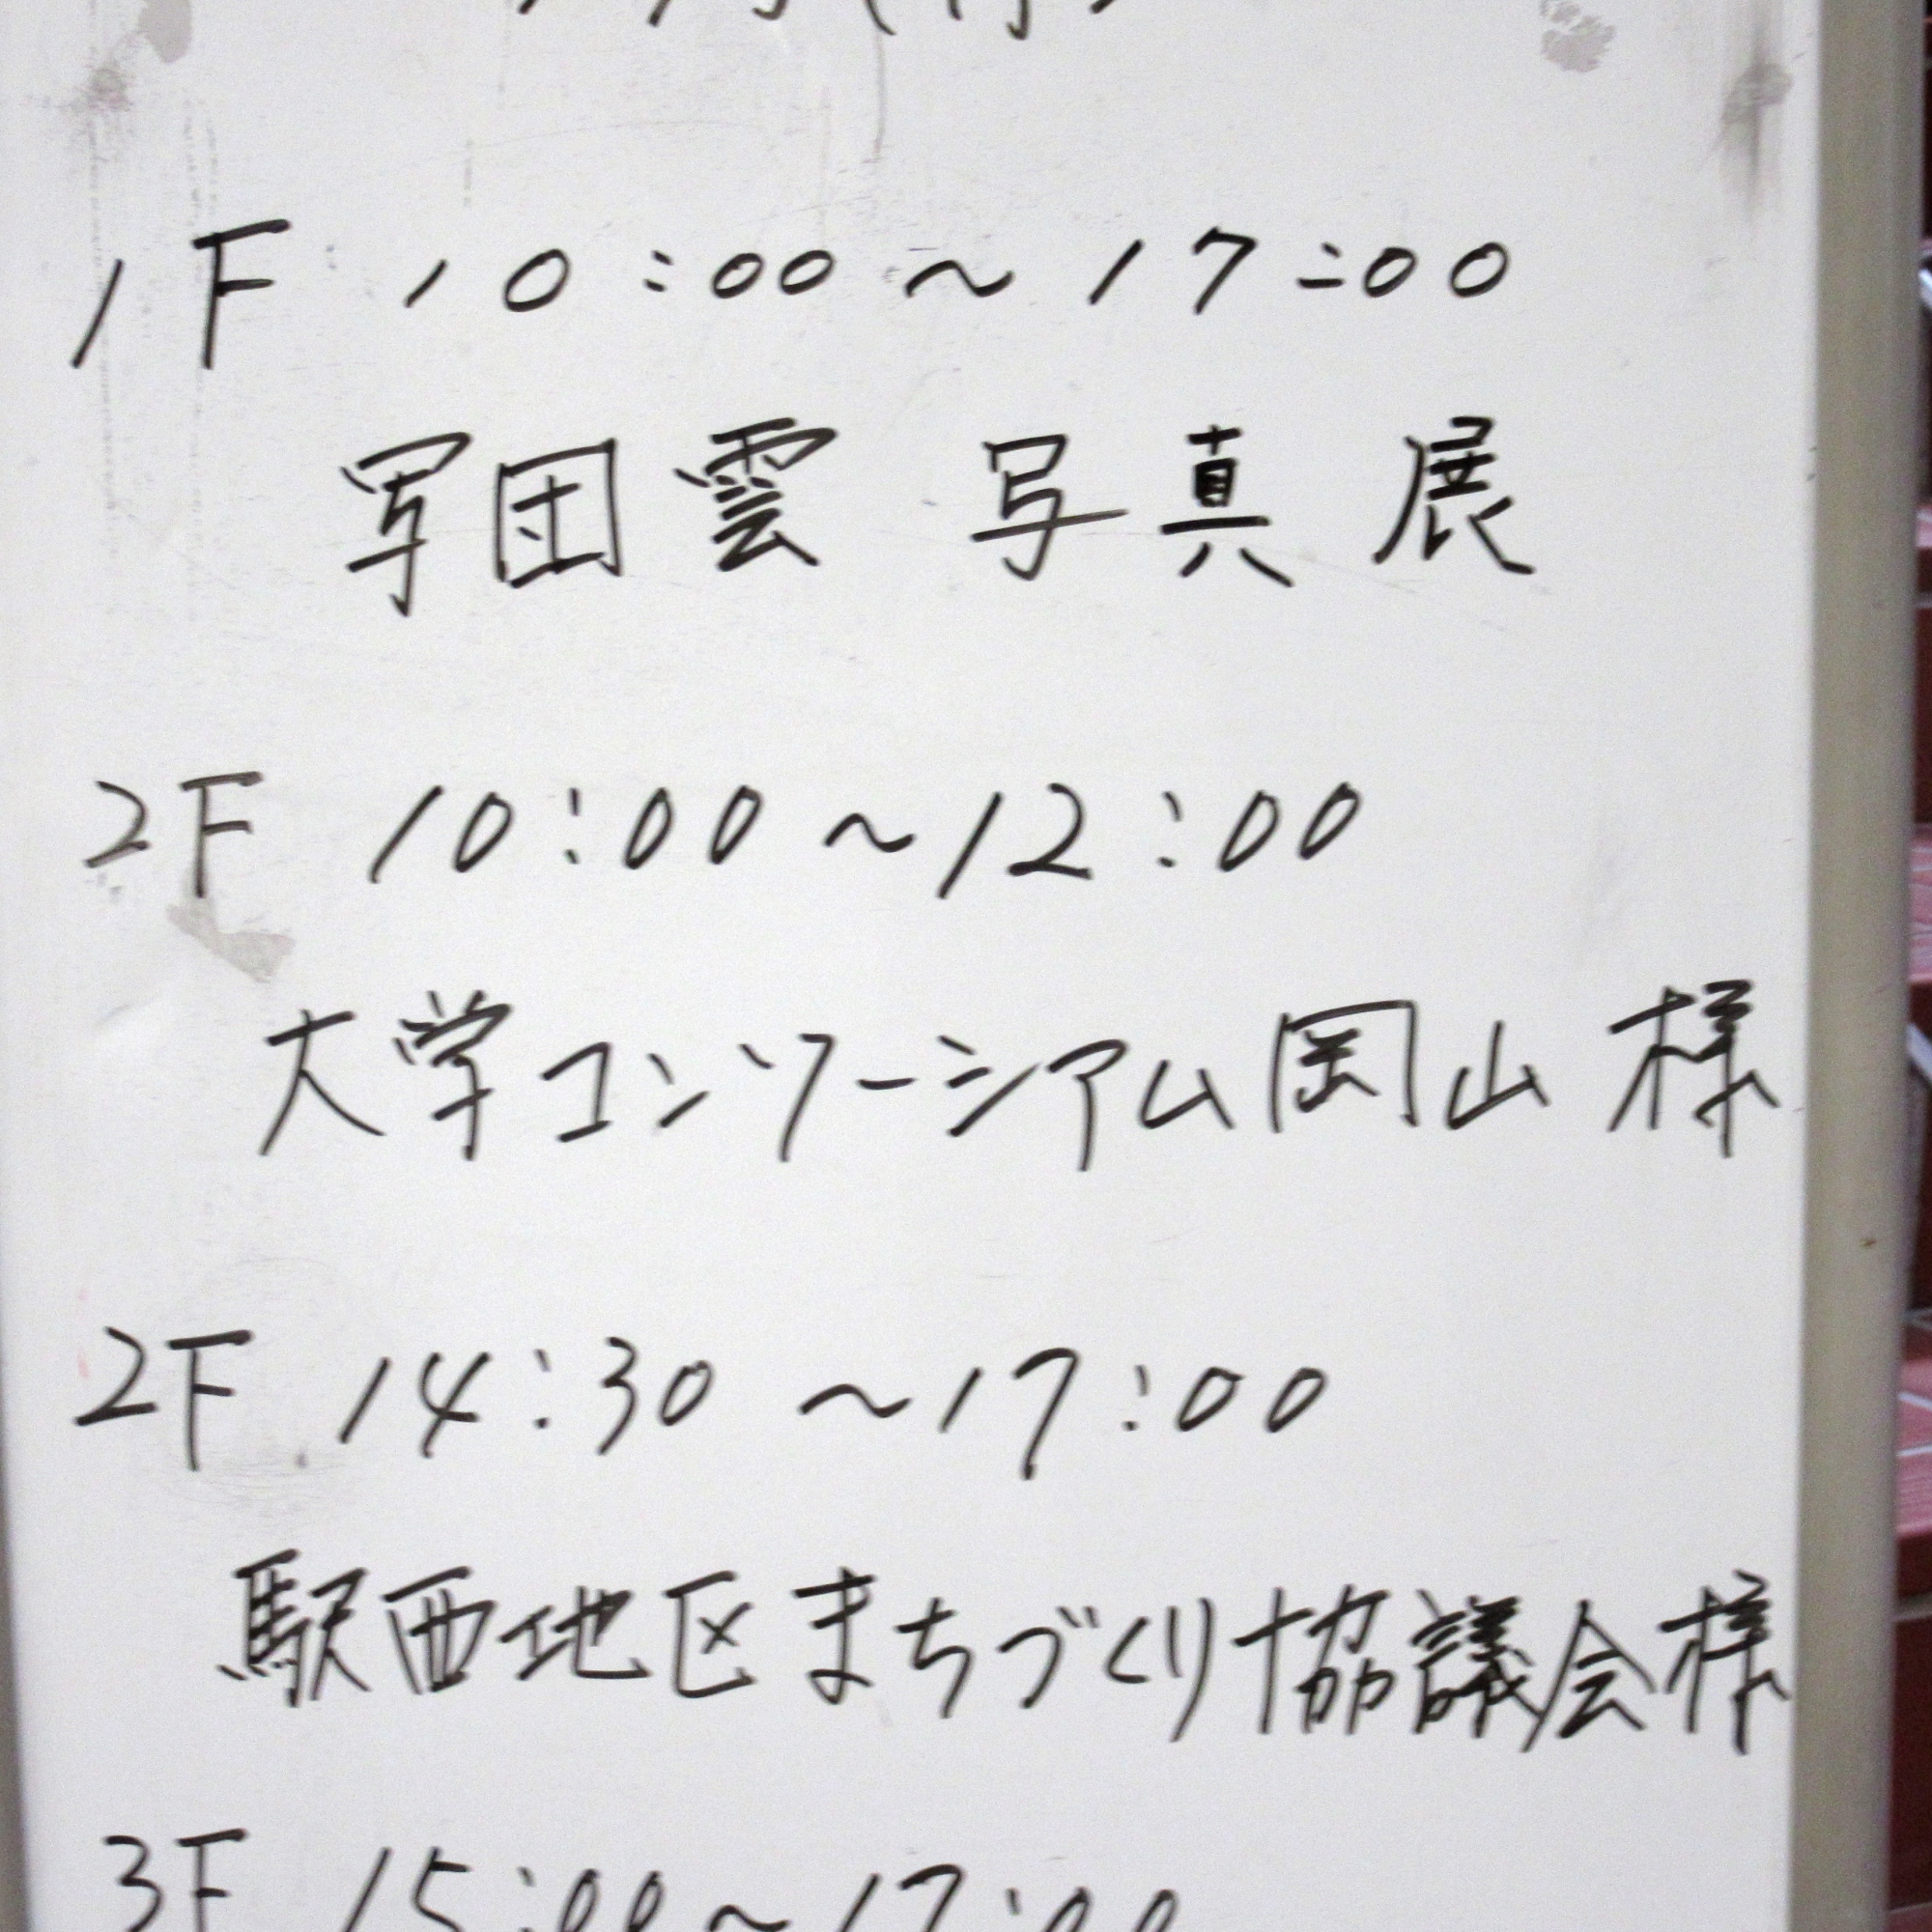 1F 10:00～17:00
写団雲 写真展
2F 10:00～12:00
大学コンソーシアム岡山 様
2F 14:30～17:00
駅西地区まちづくり協議会様
3F 15:00～17:00